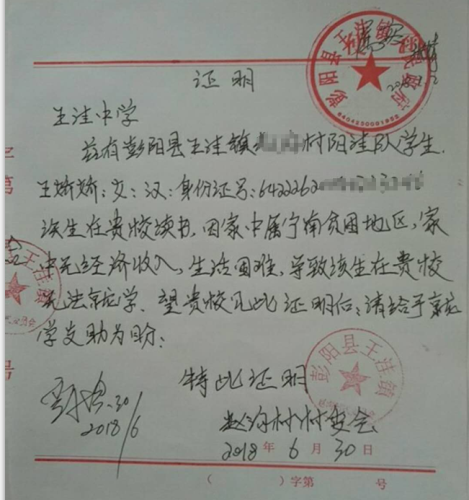 证明
王洼中学
兹有彭阳县王洼镇 村阳洼队学生
王娇娇:女:汉:身份证号:6422262
该生在贵校读书,因家中属宁南贫困地区,家
中无经济收入,生活困难,导致该生在贵校
无法完成学。望贵校见此证明后:请给予完成
学支助为盼:
特此证明
彭阳县王洼镇
赵沟村村委会
2018/6 .30
2018年6月30日
( )字第 号